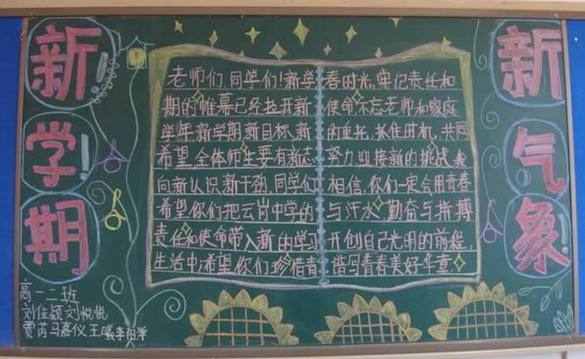 新学期
新气象
老师们、同学们!新学
期的帷幕已经拉开,新
学年新学期新目标、新
希望。全体师生要有新志
向新认识新干劲。同学们
希望你们把云岗中学的
责任和使命带入新的学习
生活中,希望你们珍惜青
春时光,牢记责任和
使命不忘老师和家庭
的重托,抓住时机,共同
努力迎接新的挑战。我
相信,你们一定会用青春
与汗水、勤奋与拼搏
开创自己光明的前程,
谱写青春美好华章
高一二班
刘佳颖 刘悦悦
贾芮 马嘉仪 王